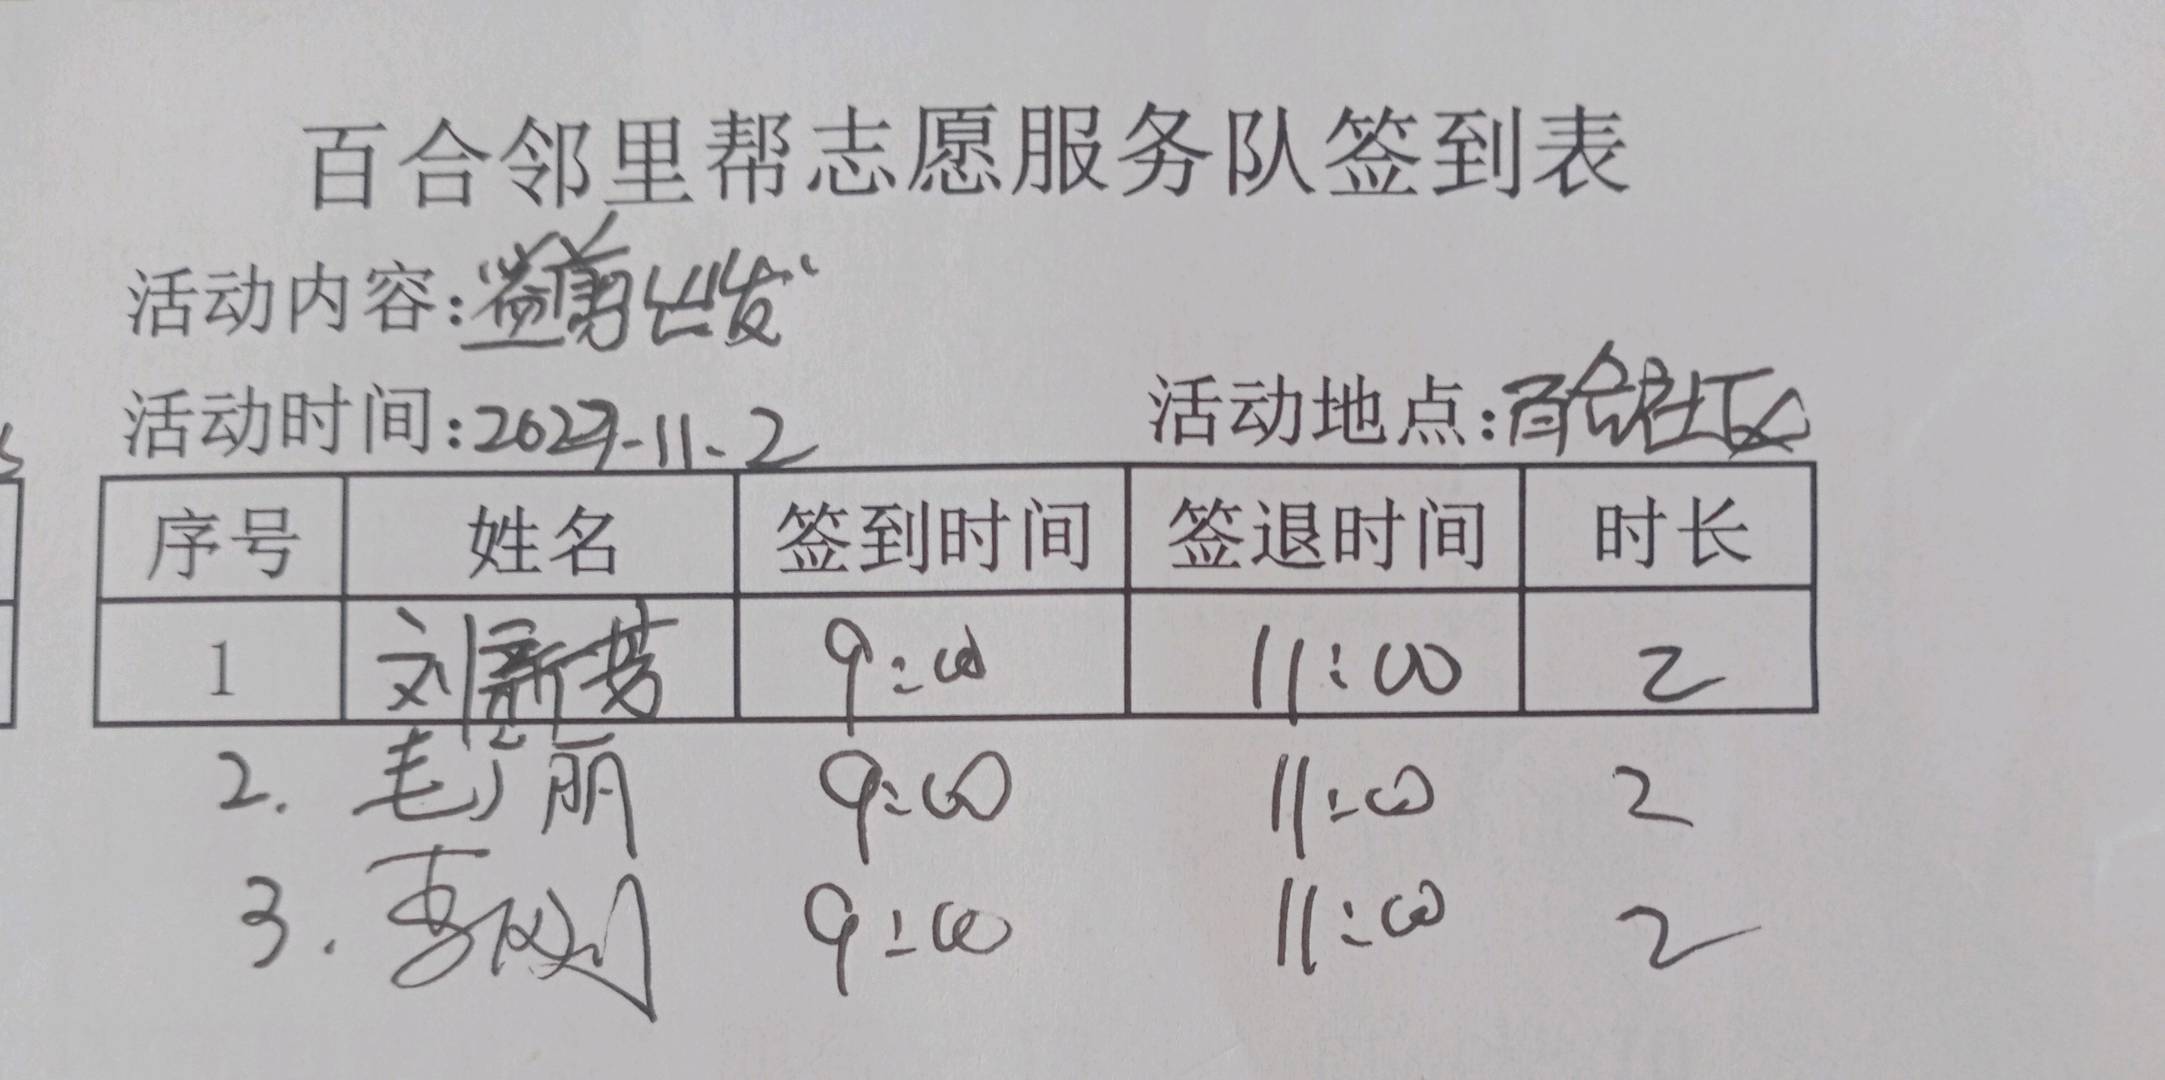 百合邻里帮志愿服务队签到表
活动内容:益剪出发
活动时间:2023-11-2 活动地点:百合社区
序号 姓名 签到时间 签退时间 时长
1 刘新芳 9:00 11:00 2
2. 毛广丽 9:00 11:00 2
3. 9:00 11:00 2